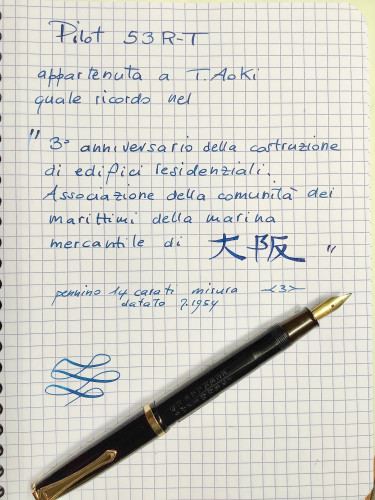 Pilot 53R-T
appartenuta a T. Aoki
quale ricordo nel
"3° anniversario della costruzione
di edifici residenziali.
Associazione della comunità dei
marittimi della marina
mercantile di 大阪"
pennino 14 carati misura <3>
datato 7.1954